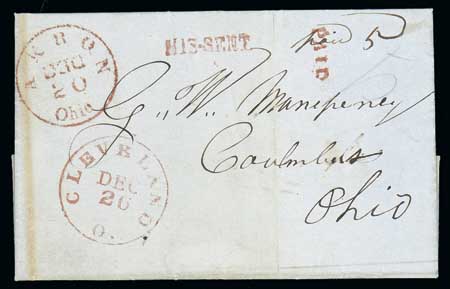 AKRON
DEC
20
Ohio
MIS-SENT
paid 5
PAID
G. W. Manepeney
Coulmbus
Ohio
CLEVELAND
DEC
20
O.